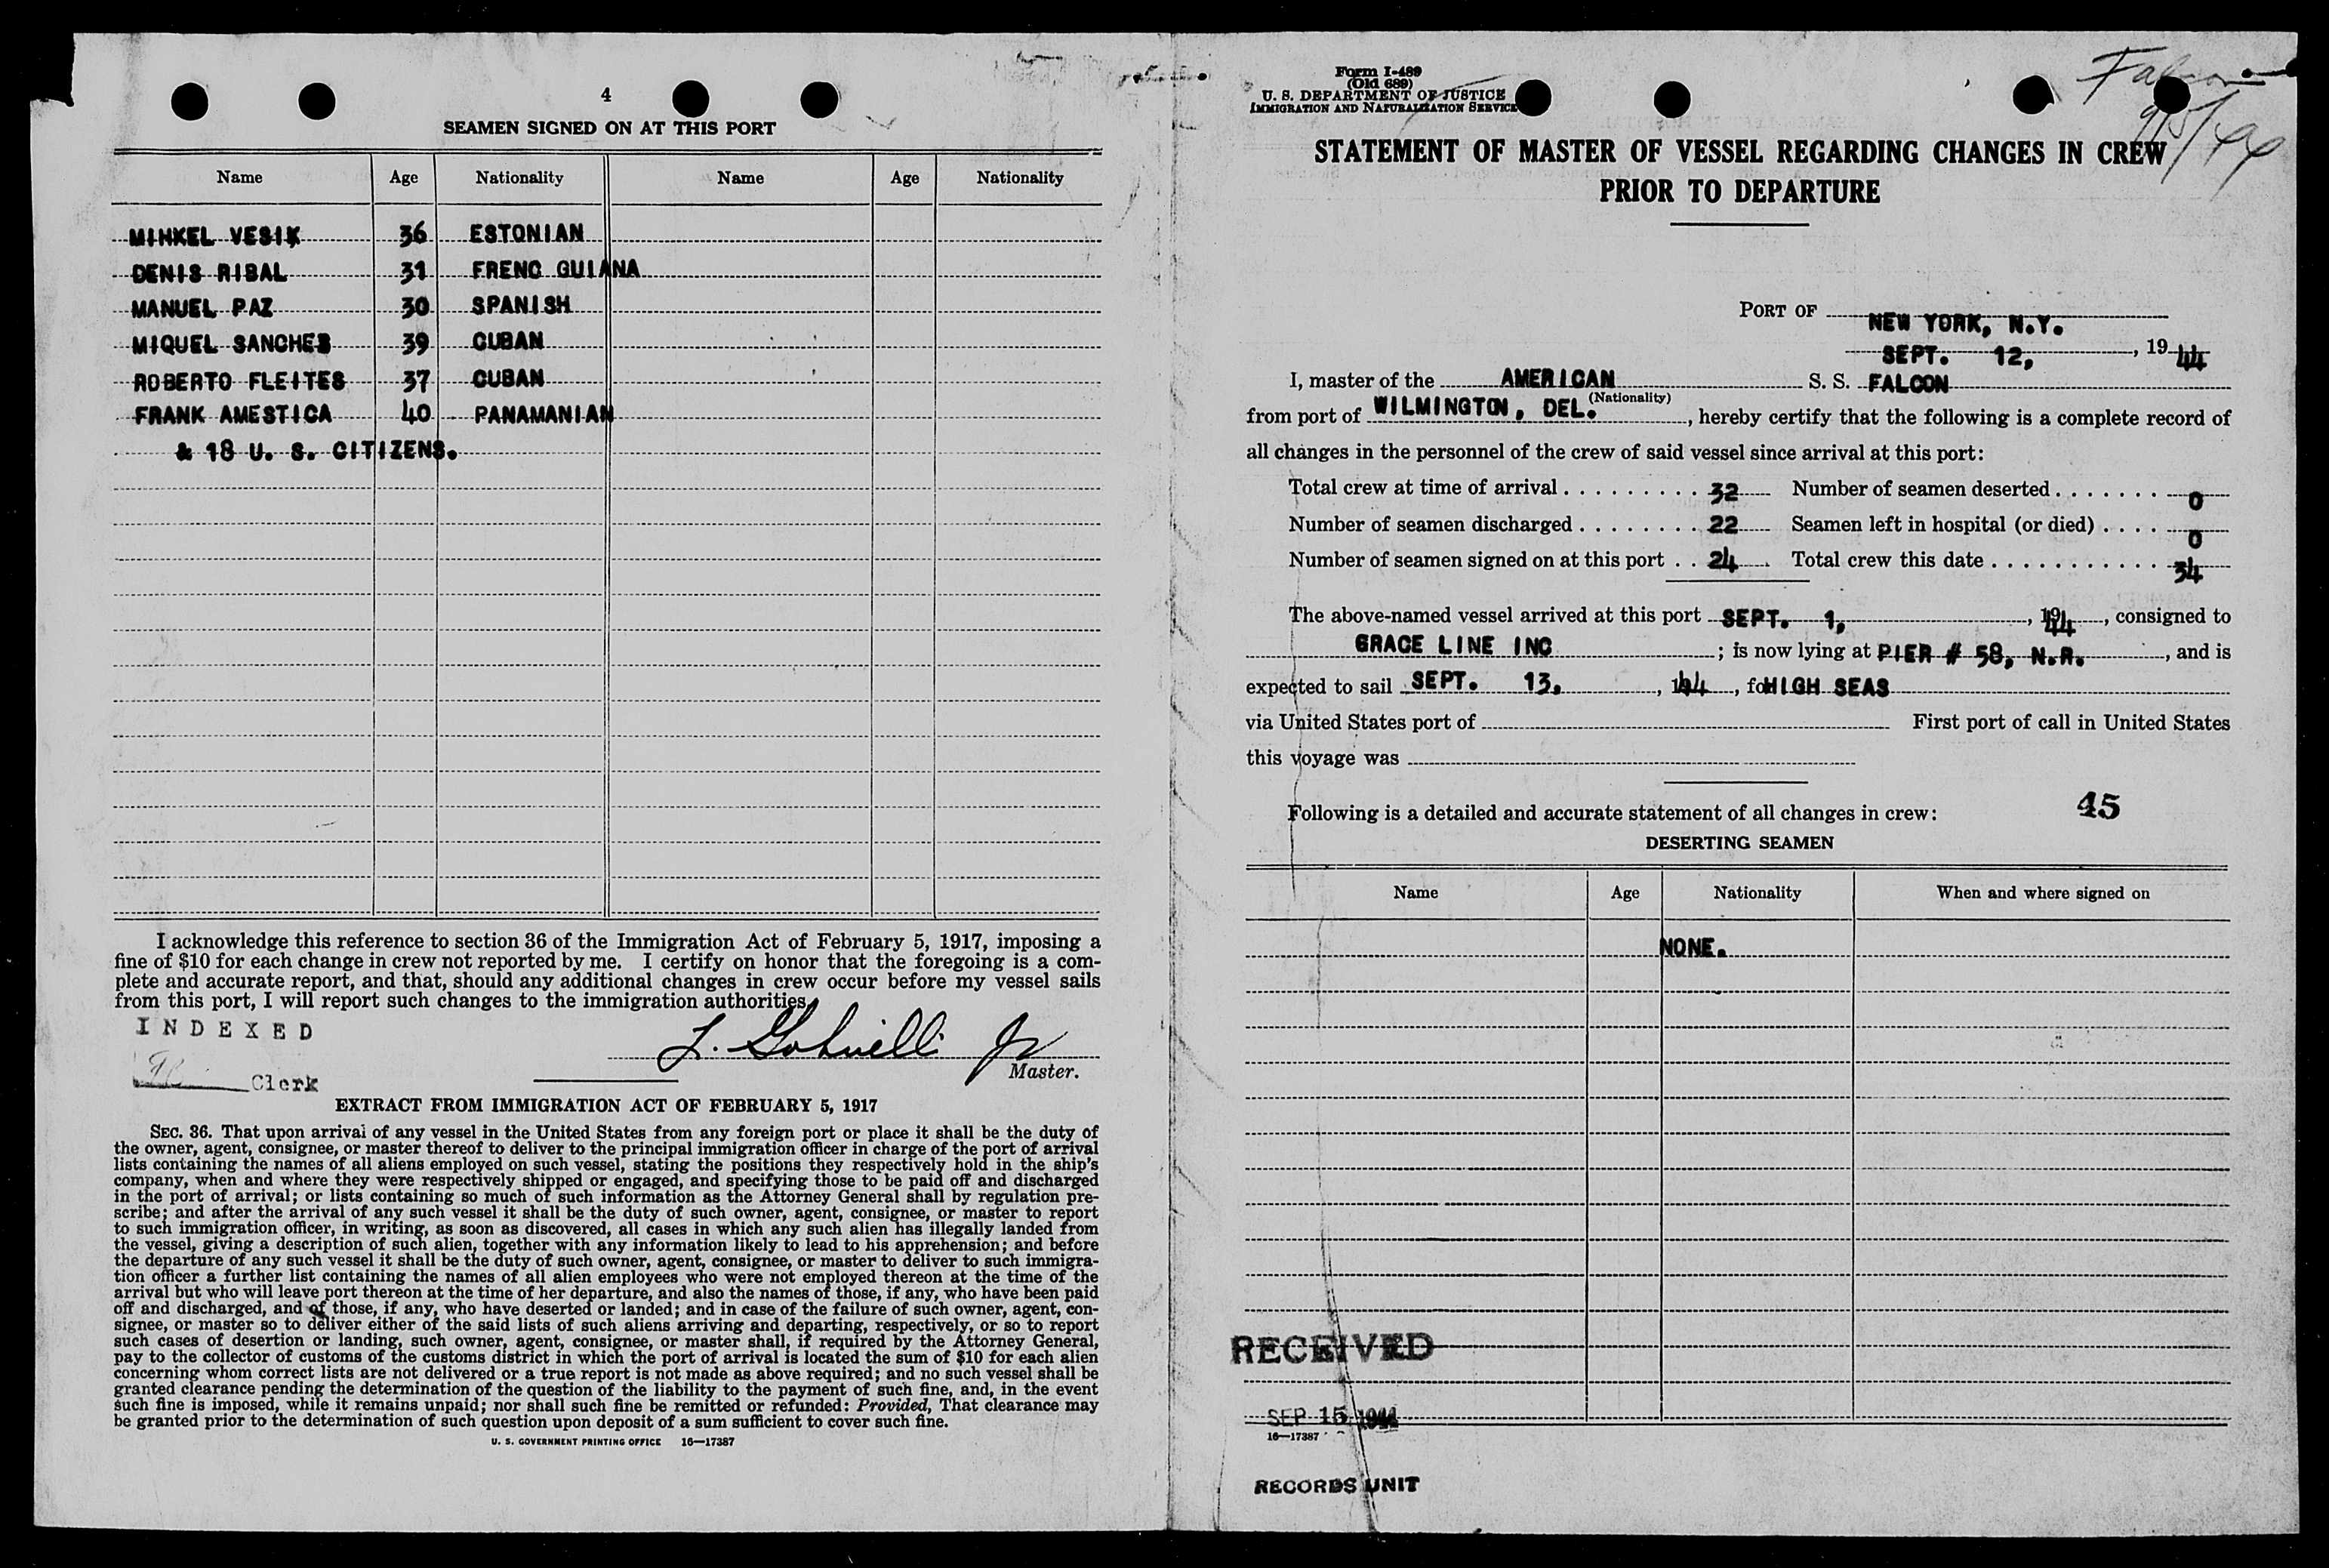 4
SEAMEN SIGNED ON AT THIS PORT
Name Age Nationality Name Age Nationality
MIHKEL VESIK 36 ESTONIAN
DENIS RIBAL 31 FRENC GUIANA
MANUEL PAZ 30 SPANISH
MIQUEL SANCHEZ 39 CUBAN
ROBERTO FLEITES 37 CUBAN
FRANK AMESTICA 40 PANAMANIAN
& 18 U. S. CITIZENS.
I acknowledge this reference to section 36 of the Immigration Act of February 5, 1917, imposing a
fine of $10 for each change in crew not reported by me. I certify on honor that the foregoing is a com-
plete and accurate report, and that, should any additional changes in crew occur before my vessel sails
from this port, I will report such changes to the immigration authorities.
INDEXED
Jr
Master.
Clerk
EXTRACT FROM IMMIGRATION ACT OF FEBRUARY 5, 1917
SEC. 36. That upon arrival of any vessel in the United States from any foreign port or place it shall be the duty of
the owner, agent, consignee, or master thereof to deliver to the principal immigration officer in charge of the port of arrival
lists containing the names of all aliens employed on such vessel, stating the positions they respectively hold in the ship's
company, when and where they were respectively shipped or engaged, and specifying those to be paid off and discharged
in the port of arrival; or lists containing so much of such information as the Attorney General shall by regulation pre-
scribe; and after the arrival of any such vessel it shall be the duty of such owner, agent, consignee, or master to report
to such immigration officer, in writing, as soon as discovered, all cases in which any such alien has illegally landed from
the vessel, giving a description of such alien, together with any information likely to lead to his apprehension; and before
the departure of any such vessel it shall be the duty of such owner, agent, consignee, or master to deliver to such immigra-
tion officer a further list containing the names of all alien employees who were not employed thereon at the time of the
arrival but who will leave port thereon at the time of her departure, and also the names of those, if any, who have been paid
off and discharged, and of those, if any, who have deserted or landed; and in case of the failure of such owner, agent, con-
signee, or master so to deliver either of the said lists of such aliens arriving and departing, respectively, or so to report
such cases of desertion or landing, such owner, agent, consignee, or master shall, if required by the Attorney General,
pay to the collector of customs of the customs district in which the port of arrival is located the sum of $10 for each alien
concerning whom correct lists are not delivered or a true report is not made as above required; and no such vessel shall be
granted clearance pending the determination of the question of the liability to the payment of such fine, and, in the event
such fine is imposed, while it remains unpaid; nor shall such fine be remitted or refunded: Provided, That clearance may
be granted prior to the determination of such question upon deposit of a sum sufficient to cover such fine.
U. S. GOVERNMENT PRINTING OFFICE 16—17387
Form I-489
(Old 689)
U. S. DEPARTMENT OF JUSTICE
IMMIGRATION AND NATURALIZATION SERVICE
Falcon
9/5/44
STATEMENT OF MASTER OF VESSEL REGARDING CHANGES IN CREW
PRIOR TO DEPARTURE
PORT OF NEW YORK, N.Y.
SEPT. 12, , 19 44
I, master of the AMERICAN S. S. FALCON
(Nationality)
from port of WILMINGTON, DEL. , hereby certify that the following is a complete record of
all changes in the personnel of the crew of said vessel since arrival at this port:
Total crew at time of arrival . . . . . . . . . 32 Number of seamen deserted . . . . . . . 0
Number of seamen discharged . . . . . . . . 22 Seamen left in hospital (or died) . . . . 0
Number of seamen signed on at this port . . 24 Total crew this date . . . . . . . . . . . . 34
The above-named vessel arrived at this port SEPT. 1, , 1944 , consigned to
GRACE LINE INC ; is now lying at PIER # 58, N.R. , and is
expected to sail SEPT. 13, , 1944 , for HIGH SEAS
via United States port of First port of call in United States
this voyage was
Following is a detailed and accurate statement of all changes in crew: 45
DESERTING SEAMEN
Name Age Nationality When and where signed on
NONE.
RECEIVED
SEP 15 1944
16—17387
RECORDS UNIT